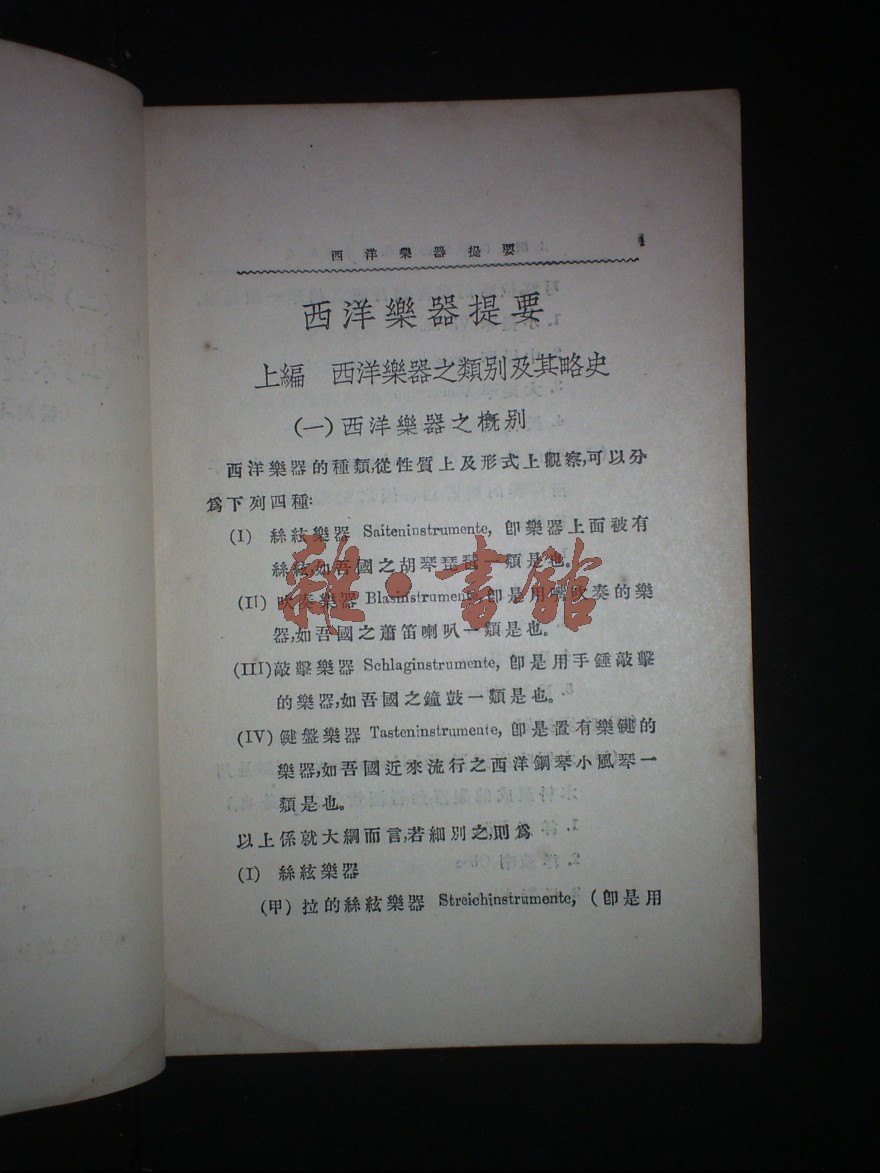 西洋樂器提要 1
西洋樂器提要
上編 西洋樂器之類別及其略史
(一)西洋樂器之概別
西洋樂器的種類,從性質上及形式上觀察,可以分
爲下列四種:
(I) 絲絃樂器 Saiteninstrumente, 卽樂器上面被有
絲絃,如吾國之胡琴琵琶一類是也。
(II) 吹奏樂器 Blasinstrumente, 卽是用嘴吹奏的樂
器,如吾國之蕭笛喇叭一類是也。
(III)敲擊樂器 Schlaginstrumente, 卽是用手錘敲擊
的樂器,如吾國之鐘鼓一類是也。
(IV) 鍵盤樂器 Tasteninstrumente, 卽是置有樂鍵的
樂器,如吾國近來流行之西洋鋼琴小風琴一
類是也。
以上係就大綱而言,若細別之,則爲
(I) 絲絃樂器
(甲) 拉的絲絃樂器 Streichinstrumente, (卽是用
雜·書館